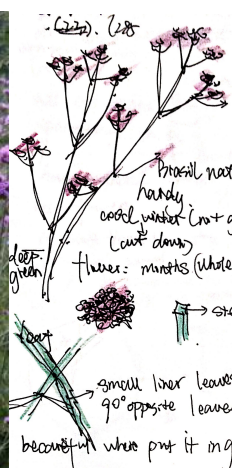 (22). (28
Brasil nat
handy
cool winter (not g
(cut down)
deep-
green
flower: months (whole
→ ste
leaf
→ small liner leaves
90° opposite leave
where put it in g